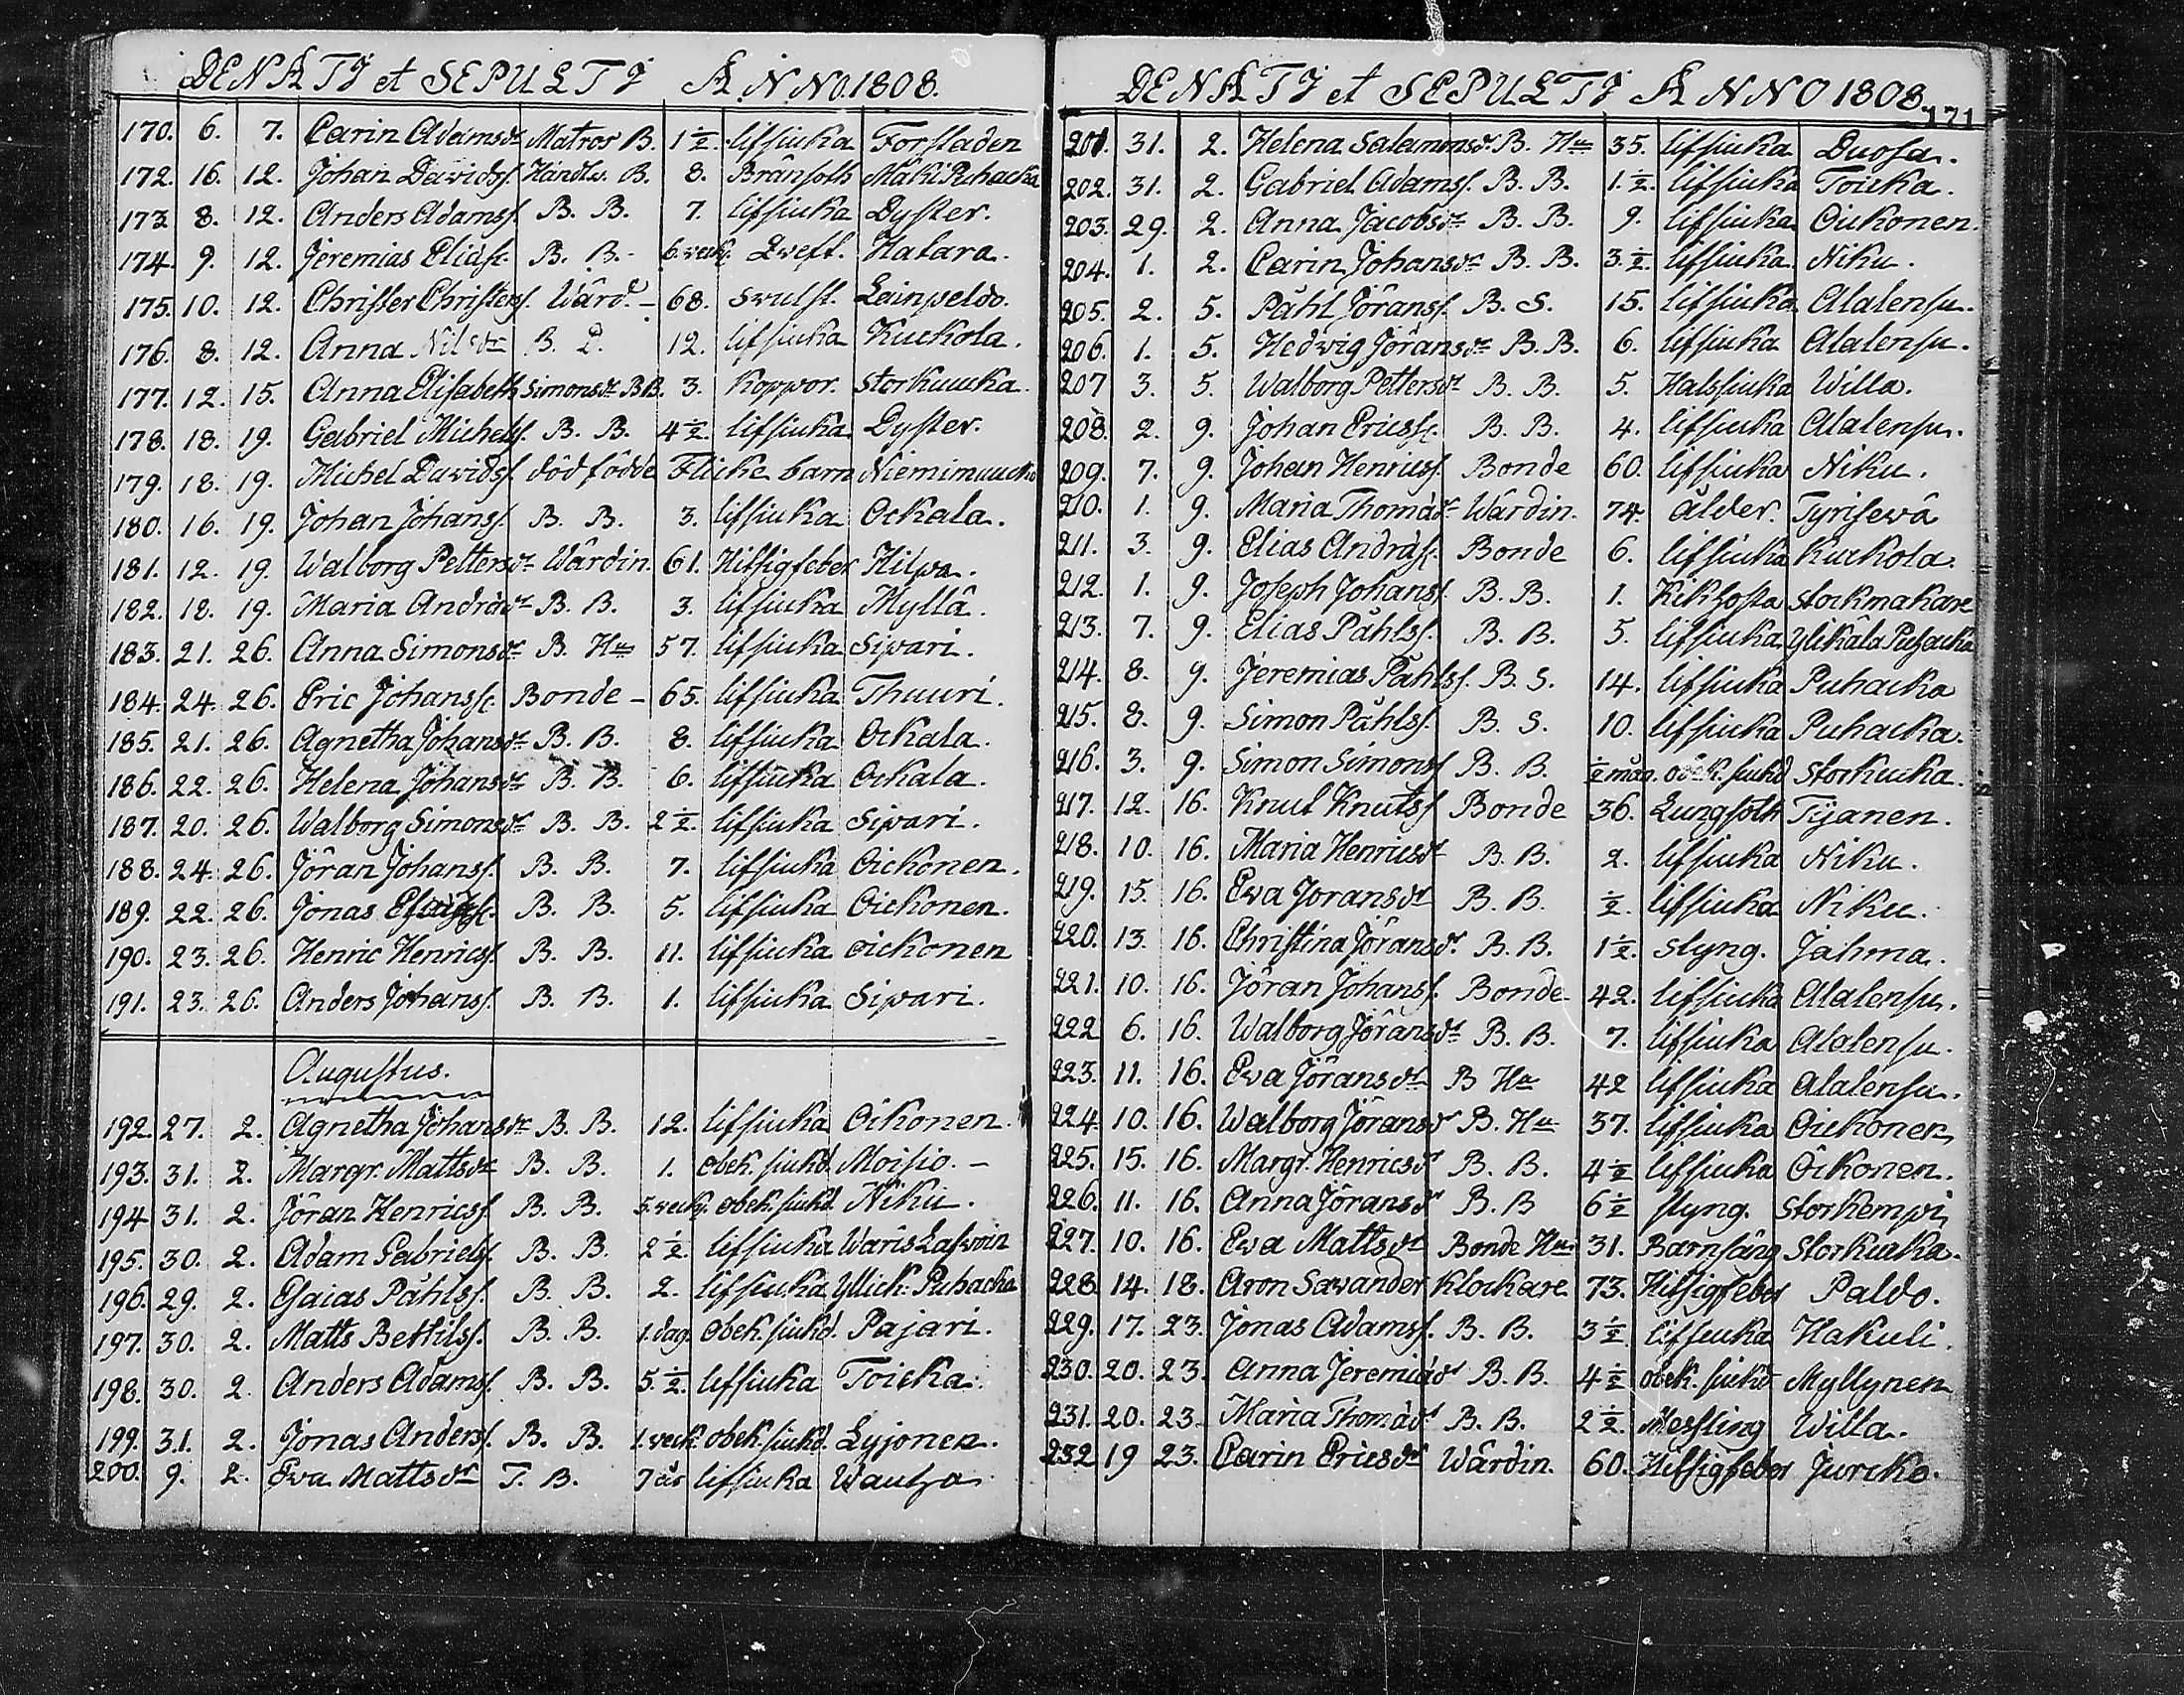 DENATJ et SEPULTJ ANNO. 1808.
170. 6. 7. Carin Adamsdr Matros B. 1 1/2 lifsiuka Forstaden
172. 16. 12. Johan Davidss. Handlr. B. 8. Brånsoth Mäki Puhacka
173 8. 12. Anders Adamss. B. B. 7. lifsiuka Dyster.
174. 9. 12. Jeremias Eliæss. B. B. 6. veck. Qveft. Hatara.
175. 10. 12. Christer Christerss. Wärd. – 68. swulst. Leinpeldo.
176. 8. 12. Anna Nilsdr B. D. 12. lifsiuka Kuckola.
177. 12. 15. Anna Elisabeth Simonsdr B B. 3. Koppor. storkuucka.
178. 18. 19. Gabriel Michelss. B. B. 4 1/2. lifsiuka Dyster.
179. 18. 19. Michel Davidss. död födde Flicke barn Niemimuucko
180. 16. 19. Johan Johanss. B. B. 3. lifsiuka Ockala.
181. 12. 19. Walborg Pettersdr Wärdin. 61. Hitsigfeber Hilpa.
182. 18. 19. Maria Andræдr B. B. 3. lifsiuka Myllä.
183. 21. 26. Anna Simonsdr B. Hu 57. lifsiuka Sipari.
184. 24. 26. Eric Johanss. Bonde – 65. lifsiuka Thuuri.
185. 21. 26. Agnetha Johansdr B. B. 8. lifsiuka Ockala.
186. 22. 26. Helena Johansdr B. B. 6. lifsiuka Ockala.
187. 20. 26. Walborg Simonsdr B. B. 2 1/2. lifsiuka Sipari.
188. 24. 26. Jöran Johanss. B. B. 7. lifsiuka Oickonen.
189. 22. 26. Jonas B. B. 5. lifsiuka Oickonen.
190. 23. 26. Henric Henricss. B. B. 11. lifsiuka oickonen
191. 23. 26. Anders Johanss. B. B. 1. lifsiuka Sipari.
Augustus.
192. 27. 2. Agnetha Johansdr B. B. 12. lifsiuka Oikonen.
193. 31. 2. Margr. Mattsdr B. B. 1. obek. siukd. Moisio. –
194 31. 2. Jöran Henricss. B. B. 5. veck. obek. siukd. Niku.
195. 30. 2. Adam Gabrielss. B. B. 2 1/2 lifsiuka Waris
196. 29. 2. Esaias Påhlss. B. B. 2. lifsiuka Yllick: Puhacka
197. 30. 2. Matts Bettilss. B. B. 1. dag. obek. siukd. Pajari.
198. 30. 2. Anders Adamss. B. B. 5. 1/2. lifsiuka Toicka.
199. 31. 2. Jonas Anderss. B. B. 1. veck. obek. siukd. Lyjonen.
200. 9. 2. Eva Mattsdr T. B. 7 år lifsiuka Wautza
DENATJ et SEPULTJ ANNO 1808.
171
201. 31. 2. Helena Salamonsdr. B. Hu 35. lifsiuka Duosa.
202. 31. 2. Gabriel Adamss. B. B. 1. 1/2. lifsiuka Toicka.
203. 29. 2. Anna Jacobsdr B. B. 9. lifsiuka Oickonen.
204. 1. 2. Carin Johansdr B. B. 3. 1/2. lifsiuka Niku.
205. 2. 5. Påhl Jöranss. B. S. 15. lifsiuka Alalensu.
206. 1. 5. Hedvig Jöransdr B. B. 6. lifsiuka Alalensu.
207 3. 5. Walborg Pettersdr B. B. 5. Halssiuka Willa.
208. 2. 9. Johan Ericss. B. B. 4. lifsiuka Alalensu.
209. 7. 9. Johan Henricss. Bonde 60. lifsiuka Niku.
210. 1. 9. Maria Thomædr Wärdin. 74. ålder. Tyrisewä
211. 3. 9. Elias Andræss. Bonde 6. lifsiuka Kuckola.
212. 1. 9. Joseph Johanss. B. B. 1. Kikhosta stockmakare
213. 7. 9. Elias Påhlss. B. B. 5. lifsiuka Ylikåla Puhacka
214. 8. 9. Jeremias Påhlss. B. S. 14. lifsiuka Puhacka
215. 8. 9. Simon Påhlss. B. S. 10. lifsiuka Puhacka.
216. 3. 9. Simon Simonss. B. B. 1/2 mån. obek. siukd storkucka.
217. 12. 16. Knut Knutss. Bonde 36. Lungsoth Tyanen.
218. 10. 16. Maria Henricsdr B. B. 2. lifsiuka Niku.
219. 15. 16. Eva Joransdr B. B. 1/2. lifsiuka Niku.
220. 13. 16. Christina Jöransdr. B. B. 1 1/2. styng. Jahma.
221. 10. 16. Jöran Johanss. Bonde 42. lifsiuka Alalensu.
222 6. 16. Walborg Jöransdr B. B. 7. lifsiuka Alalensu.
223. 11. 16. Eva Jöransdr B Hu 42 lifsiuka Alalensu.
224. 10. 16. Walborg Jöransdr B. Hu 37. lifsiuka Oickonen
225. 15. 16. Margr. Henricsdr B. B. 4 1/2 lifsiuka Oikonen.
226. 11. 16. Anna Jöransdr B. B 6 1/2 styng. storkempi
227. 10. 16. Eva Mattsdr Bonde Hu 31. Barnsäng Storkucka.
228. 14. 18. Aron Savander Klockare 73. Hitsigfeber Paldo.
229. 17. 23. Jonas Adamss. B. B. 3 1/2 lifsiuka Hakuli.
230. 20. 23. Anna Jeremiædr B. B. 4 1/2 obek. siukd Myllynen
231. 20. 23. Maria Thomædr B. B. 2 1/2. Messling Willa.
232 19 23. Carin Ericsdr Wärdin. 60. Hitsigfeber Jurcko.